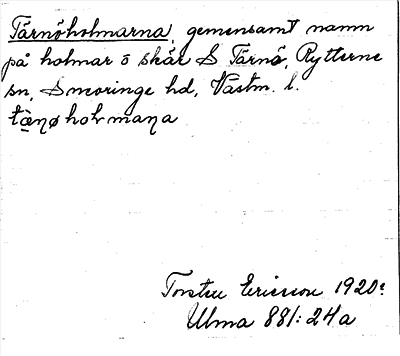 Tärnöholmarna, gemensamt namn
på holmar o skär S Tärnö, Rytterne
sn, Snevringe hd, Västm. l.
Torsten Ericsson 1920.
Ulma 881:24a